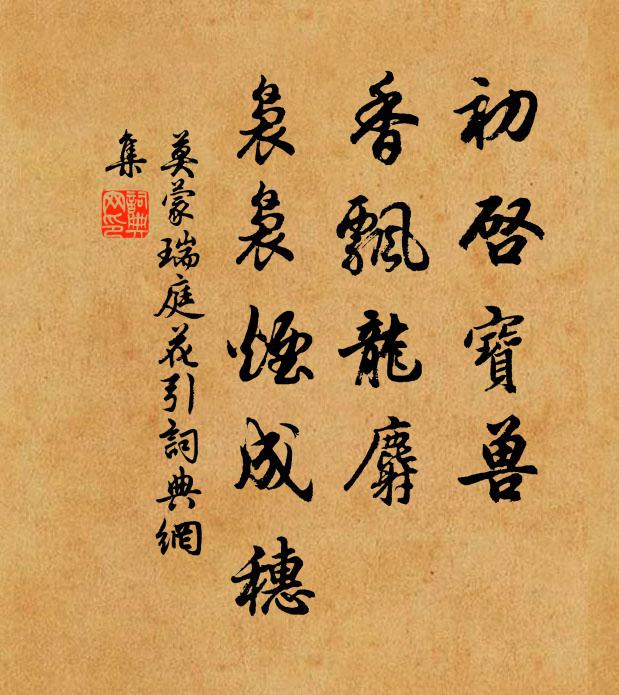 初啓寶兽
香飄龍麝
裊裊煙成穗
莫蒙瑞庭花引詞典網
集
詞典
网印